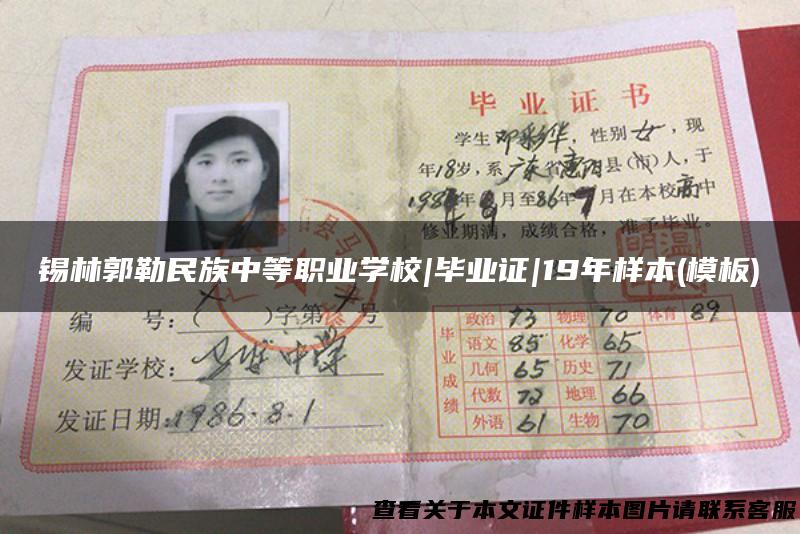 毕业证书
学生邓彩华，性别女，现
年18岁，系广东省惠阳县（市）人，于
月至86年7月在本校高中
修业期满，成绩合格，准予毕业。
锡林郭勒民族中等职业学校|毕业证|19年样本(模板)
编 号：( )字第 号
发证学校：
发证日期：1986.8.1
毕业成绩
政治 73 物理 70 体育 89
语文 85 化学 65
几何 65 历史 71
代数 72 地理 66
外语 61 生物 70
查看关于本文证件样本图片请联系客服